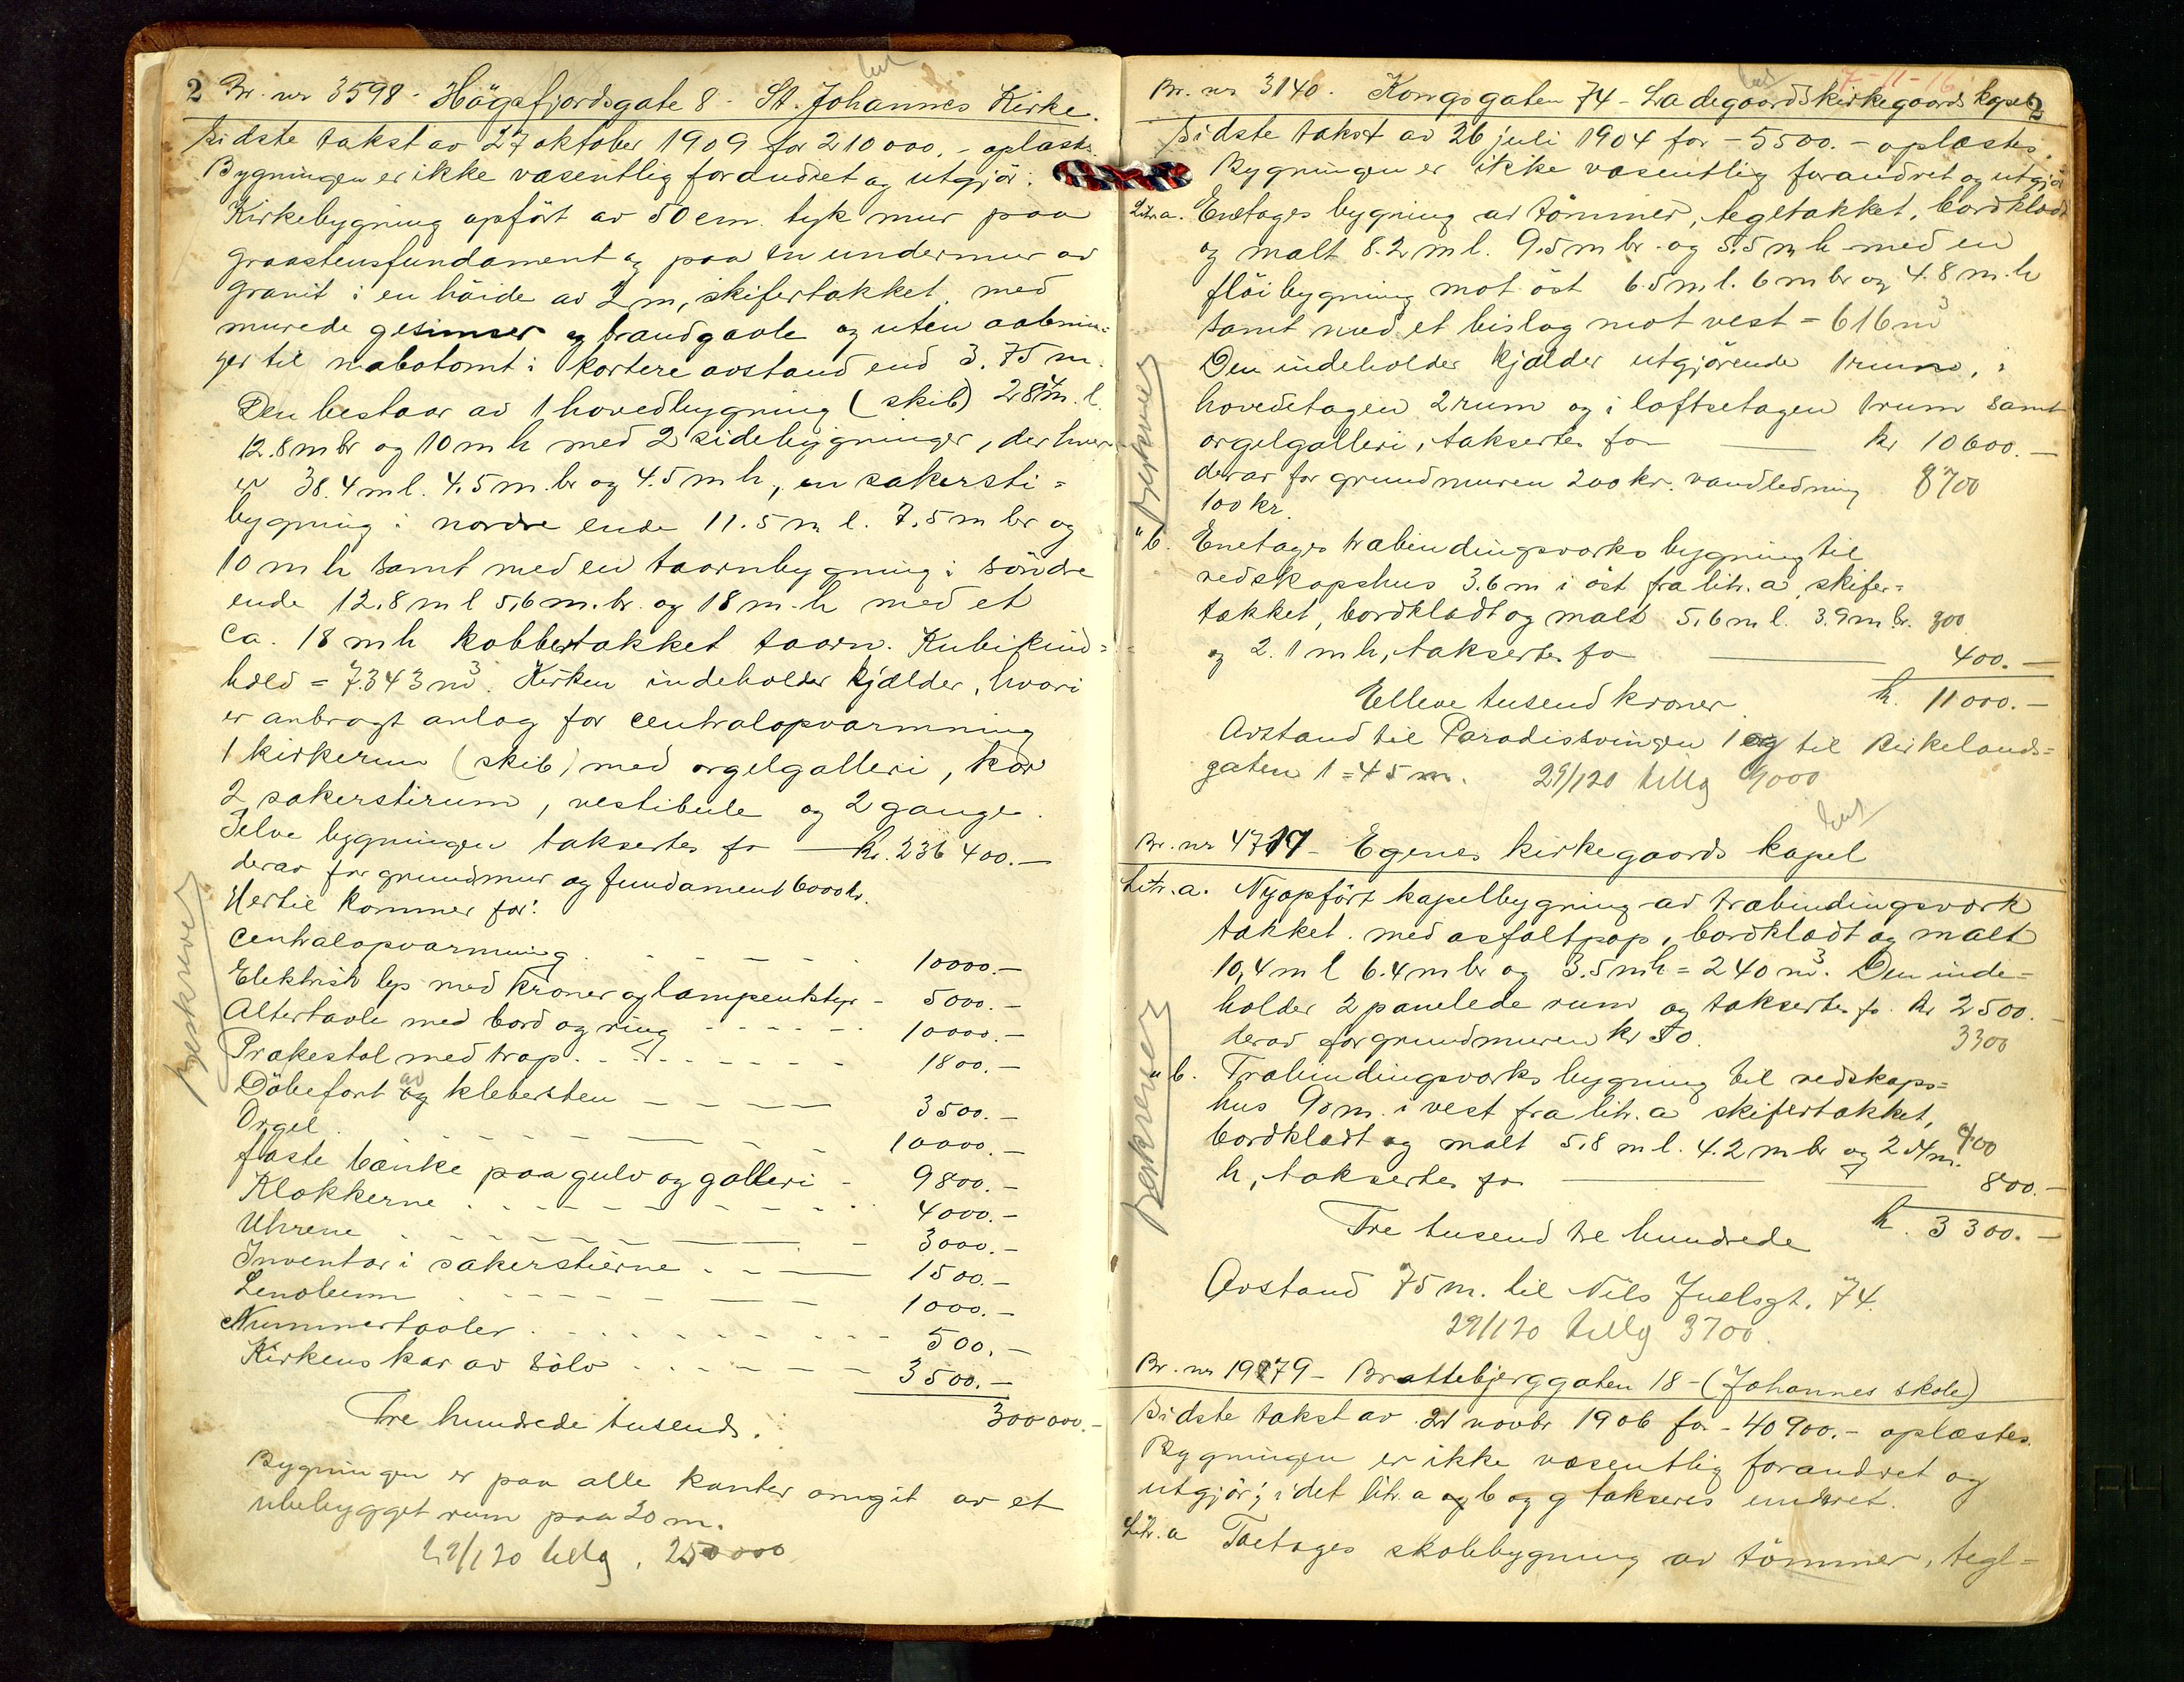 2 Br. nr 3598 - Högsfjordsgate 8 - St. Johannes Kirke.
Sidste takst av 27 oktober 1909 for 210000.- oplæstes.
Bygningen er ikke væsentlig forandret og utgjør:
Kirkebygning opført av 50 cm. tyk mur paa
graastensfundament og paa en undermur av
granit i en høide av 2 m, skifertækket, med
murede gesimser og brandgavle og uten aabnin=
ger til nabotomt i kortere avstand end 3.75 m.
Den bestaar av 1 hovedbygning (skib) 28.4 m. l.
12.8 m br og 10 m h med 2 sidebygninger, der hver
er 38.4 m l. 4.5 m. br og 4.5 m h, en sakersti=
bygning i nordre ende 11.5 m l. 7.5 m br og
10 m h samt med en taarnbygning i søndre
ende 12.8 m l 5.6 m. br. og 18 m. h med et
ca. 18 m h kobbertækket taarn. Kubikind=
hold = 7343 m³. Kirken indeholder kjælder, hvori
er anbragt anlæg for centralopvarmning
1 kirkerum (skib) med orgelgalleri, kor
2 sakerstirum, vestibule og 2 gange.
Selve bygningen takseres for kr. 236 400.-
derav for grundmur og fundament 6000 kr.
Hertil kommer for:
Centralopvarmning 10000.-
Elektrisk lys med kroner og lampeutstyr - 5000.-
Altertavle med bord og ring 10000.-
Prækestol med trap. 1800.-
Döbefont av klebersten 3500.-
Orgel 10000.-
faste bænke paa gulv og galleri - 9800.-
Klokkerne 4000.-
Uhrene 3000.-
Inventar i sakerstierne 1500.-
Lenoleum 1000.-
Nummertavler 500.-
Kirkens kar av sølv 3500.-
Tre hundrede tusend. 300000.-
Bygningen er paa alle kanter omgit av et
ubebygget rum paa 20 m.
29/1 20 tillg. 250000
Beskrevet
7-11-16
Br. nr 3140. Kongsgaten 74 - Ladegaardskirkegaards kapel 2
Sidste takst av 26 juli 1904 for - 5500.- oplæstes.
Bygningen er ikke væsentlig forandret og utgjør
Litr. a. Enetages bygning av tømmer, tegltækket, bordklædt
og malt 8.2 m l. 9.5 m br. og 5.5 m h med en
fløibygning mot øst 6.5 m l. 6 m br og 4.8 m. h
samt med et bislag mot vest = 616 m³
Den indeholder kjælder utgjørende 1 rum, i
hovedetagen 2 rum og i loftsetagen 1 rum samt
orgelgalleri, takseres for kr 10600.-
derav for grundmuren 200 kr. vandledning 8700
100 kr.
" b. Enetages træbindingsverks bygning til
redskapshus 3.6 m i øst fra litr. a, skifer=
tækket, bordklædt og malt 5.6 m l. 3.9 m br. 300
og 2.1 m h, takseres for 400.-
Elleve tusend kroner kr. 11000.-
Avstand til Paradissvingen 1 og til Birkelands=
gaten 1 = 45 m. 29/1 20 tillg 9000
Beskrevet
Br. nr 4717 - Egenes kirkegaards kapel
Litr. a. Nyopført kapelbygning av træbindingsverk
tækket med asfaltpap, bordklædt og malt
10,4 m l 6.4 m br og 3.5 m h = 240 m³. Den inde=
holder 2 panelede rum og takseres for kr 2500.-
derav for grundmuren kr 50. 3300
" b. Træbindingsverks bygning til redskaps=
hus 90 m. i vest fra litr. a skifertækket,
bordklædt og malt 5.8 m l. 4.2 m br og 2.4 m. 400
h, takseres for 800.-
Tre tusend tre hundrede kr. 3300.-
Avstand 75 m. til Nils Juelsgt. 74.
29/1 20 tillg 3700.
Beskrevet
Br. nr 1979 - Brattebjerggaten 18 - (Johannes skole)
Sidste takst av 21 novbr 1906 for - 40900.- oplæstes.
Bygningen er ikke væsentlig forandret og
utgjør; idet litr. a og b og g takseres under et.
Litr. a Toetages skolebygning av tømmer, tegl=